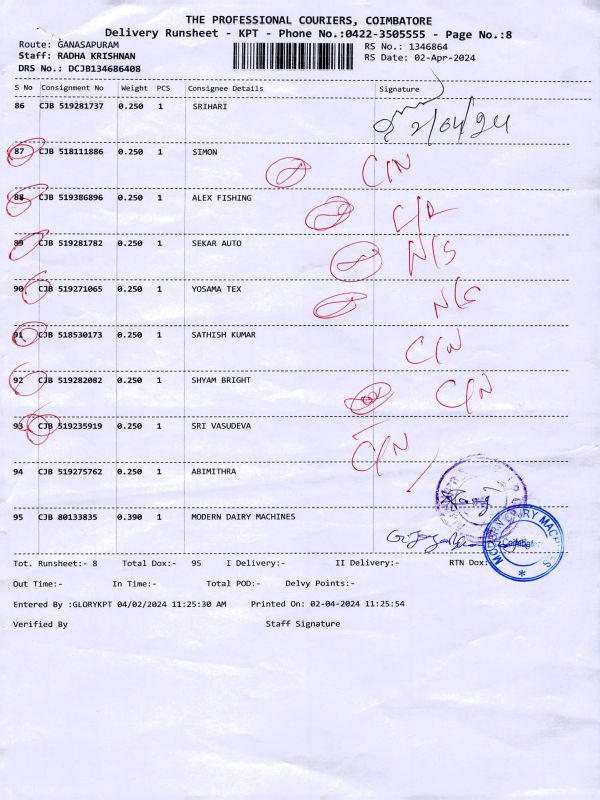 THE PROFESSIONAL COURIERS, COIMBATORE
Delivery Runsheet - KPT - Phone No.:0422-3505555 - Page No.:8
Route: GANASAPURAM RS No.: 1346864
Staff: RADHA KRISHNAN RS Date: 02-Apr-2024
DRS No.: DCJB134686408
S No Consignment No Weight PCS Consignee Details Signature
86 CJB 519281737 0.250 1 SRIHARI 2/04/24
87 CJB 518111886 0.250 1 SIMON C/N
88 CJB 519386896 0.250 1 ALEX FISHING
89 CJB 519281782 0.250 1 SEKAR AUTO N/S
90 CJB 519271065 0.250 1 YOSAMA TEX N/S
91 CJB 518530173 0.250 1 SATHISH KUMAR C/N
92 CJB 519282082 0.250 1 SHYAM BRIGHT C/N
93 CJB 519235919 0.250 1 SRI VASUDEVA C/N
94 CJB 519275762 0.250 1 ABIMITHRA
95 CJB 80133835 0.390 1 MODERN DAIRY MACHINES
MODERN DAIRY MACHINES
Tot. Runsheet:- 8 Total Dox:- 95 I Delivery:- II Delivery:- RTN Dox:
Out Time:- In Time:- Total POD:- Delvy Points:-
Entered By :GLORYKPT 04/02/2024 11:25:30 AM Printed On: 02-04-2024 11:25:54
Verified By Staff Signature